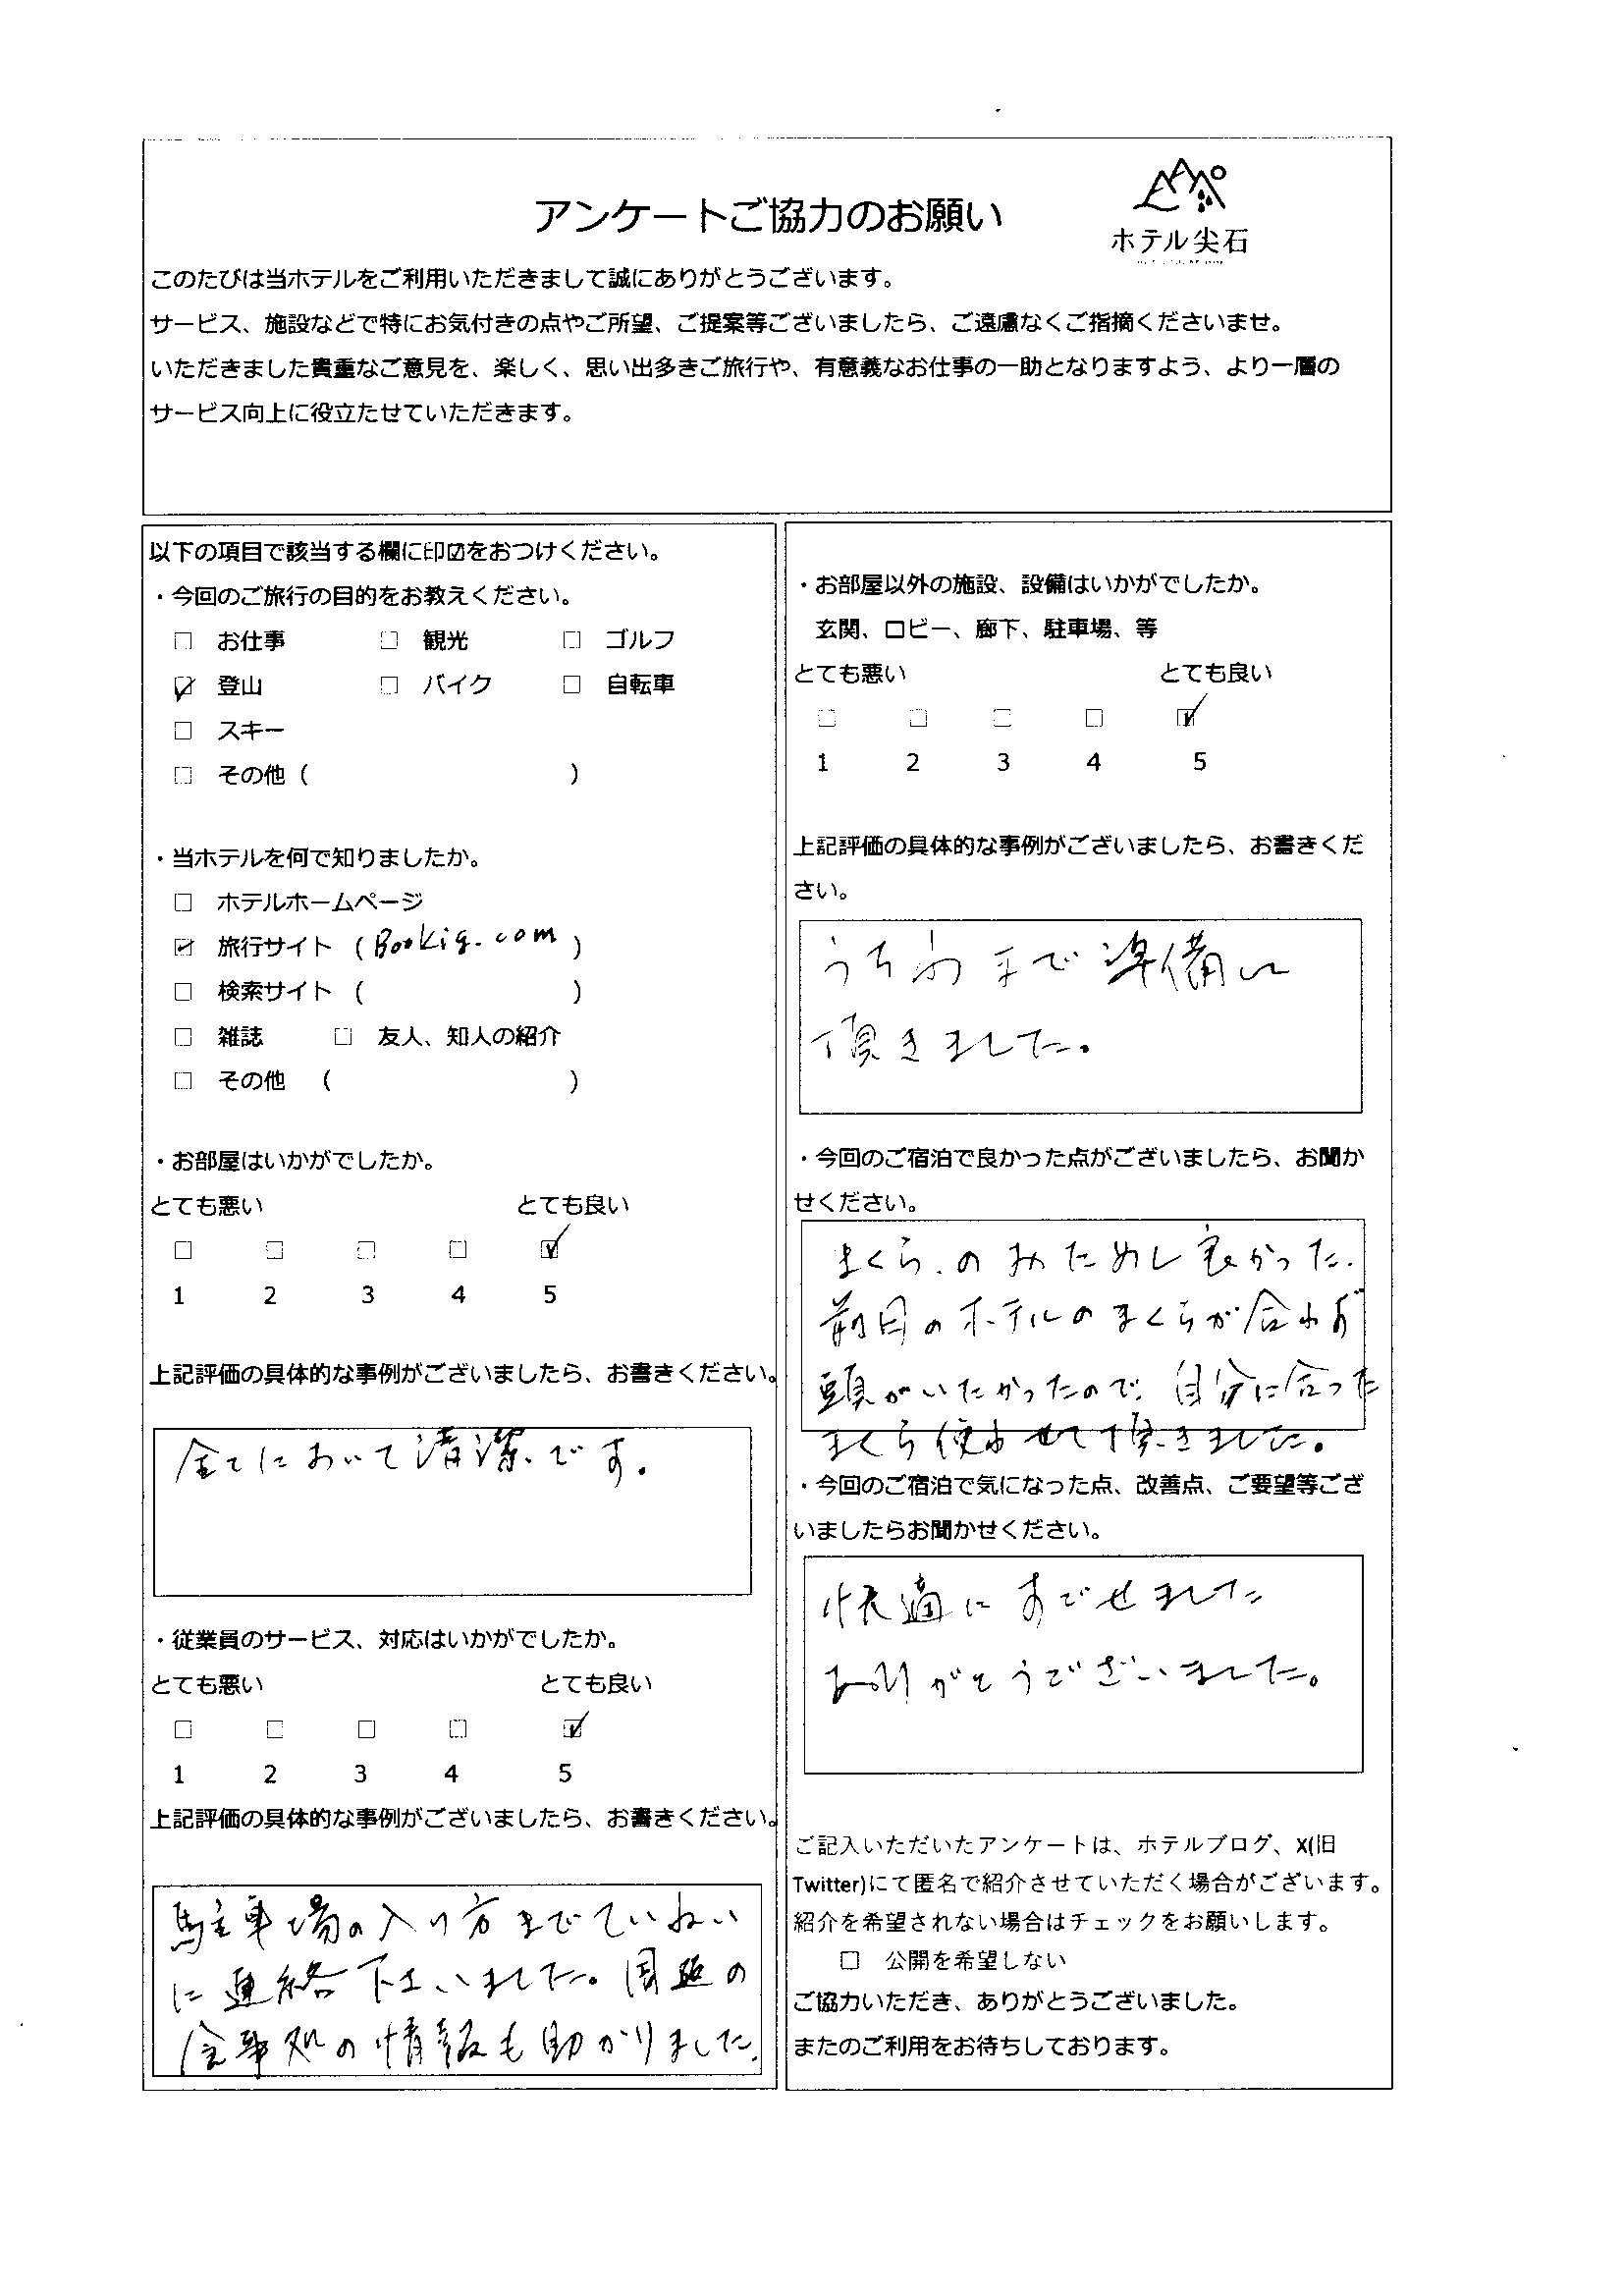 アンケートご協力のお願い
ホテル尖石
このたびは当ホテルをご利用いただきまして誠にありがとうございます。
サービス、施設などで特にお気付きの点やご所望、ご提案等ございましたら、ご遠慮なくご指摘くださいませ。
いただきました貴重なご意見を、楽しく、思い出多きご旅行や、有意義なお仕事の一助となりますよう、より一層の
サービス向上に役立たせていただきます。
以下の項目で該当する欄に印☑をおつけください。
・今回のご旅行の目的をお教えください。
□ お仕事 □ 観光 □ ゴルフ
☑ 登山 □ バイク □ 自転車
□ スキー
□ その他 ( )
・当ホテルを何で知りましたか。
□ ホテルホームページ
☑ 旅行サイト (Bookig.com)
□ 検索サイト ( )
□ 雑誌 □ 友人、知人の紹介
□ その他 ( )
・お部屋はいかがでしたか。
とても悪い とても良い
□ □ □ □ ☑
1 2 3 4 5
上記評価の具体的な事例がございましたら、お書きください。
全てにおいて清潔です。
・従業員のサービス、対応はいかがでしたか。
とても悪い とても良い
□ □ □ □ ☑
1 2 3 4 5
上記評価の具体的な事例がございましたら、お書きください。
駐車場の入り方までていねい
に連絡下さいました。周辺の
食事処の情報も助かりました.
・お部屋以外の施設、設備はいかがでしたか。
玄関、ロビー、廊下、駐車場、等
とても悪い とても良い
□ □ □ □ ☑
1 2 3 4 5
上記評価の具体的な事例がございましたら、お書きくだ
さい。
うちわまで準備して
頂きました。
・今回のご宿泊で良かった点がございましたら、お聞か
せください。
まくら、のおためし良かった.
前日のホテルのまくらが合わず
頭がいたかったので、自分に合った
まくら使わせて頂きました。
・今回のご宿泊で気になった点、改善点、ご要望等ござ
いましたらお聞かせください。
快適にすごせました
ありがとうございました。
ご記入いただいたアンケートは、ホテルブログ、X(旧
Twitter)にて匿名で紹介させていただく場合がございます。
紹介を希望されない場合はチェックをお願いします。
□ 公開を希望しない
ご協力いただき、ありがとうございました。
またのご利用をお待ちしております。